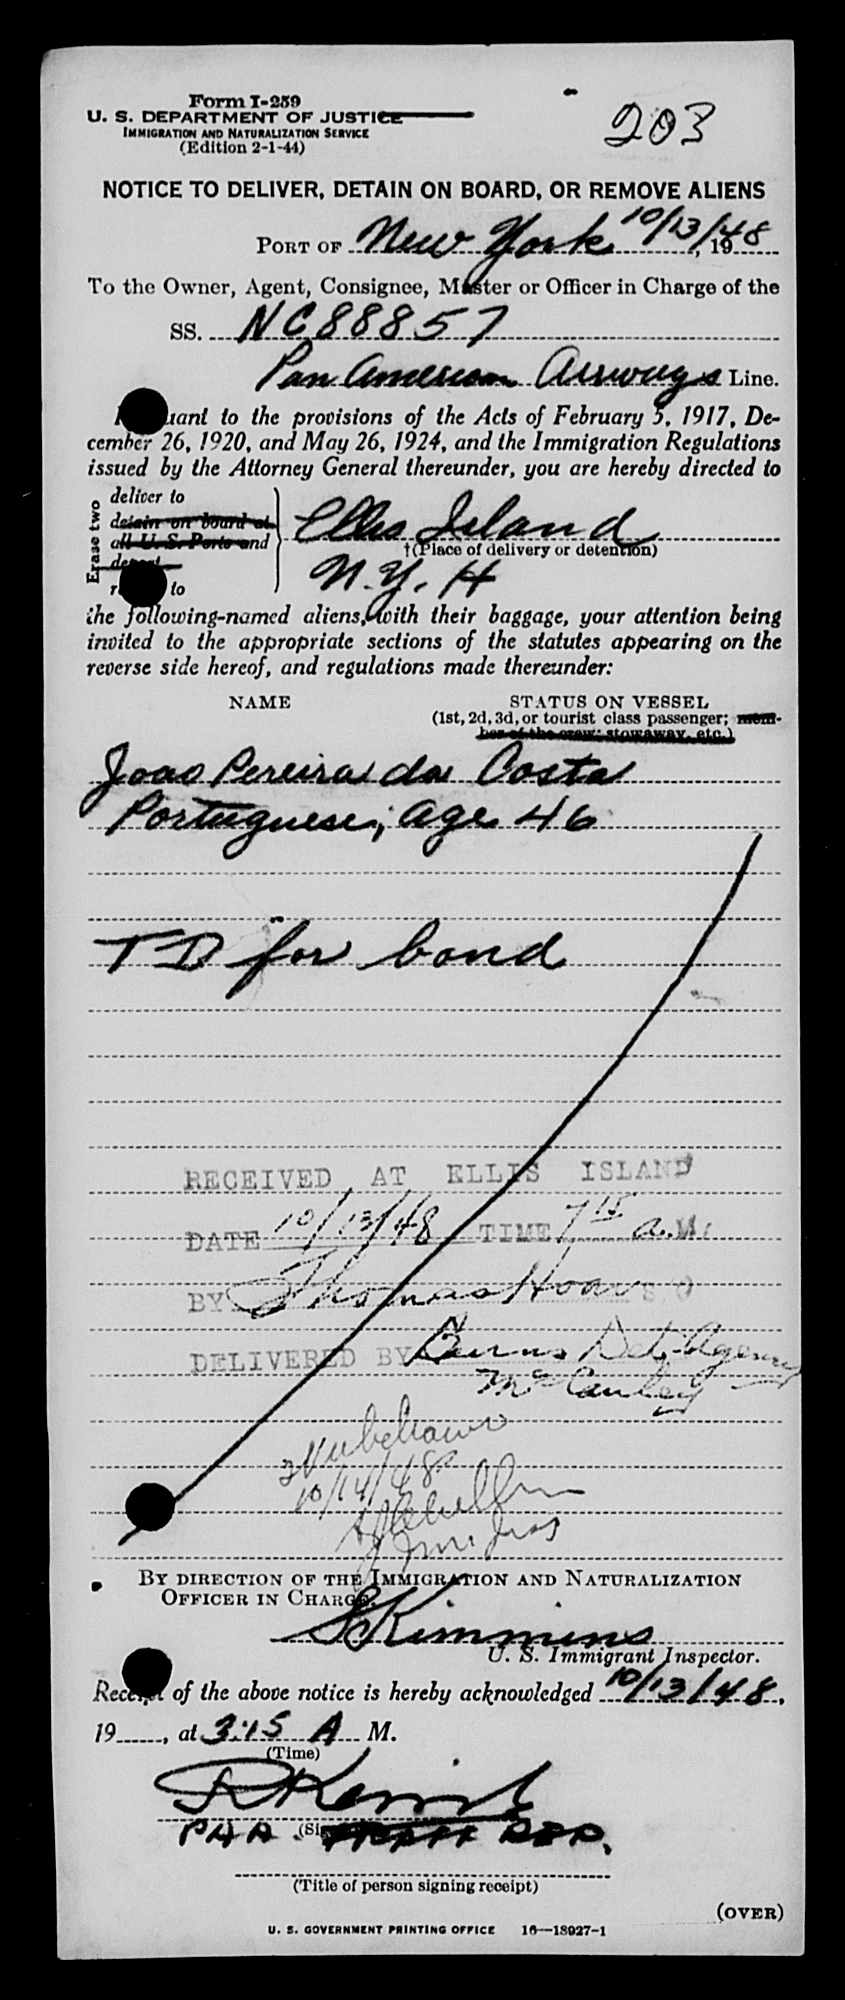 Form I-259
U. S. DEPARTMENT OF JUSTICE
IMMIGRATION AND NATURALIZATION SERVICE
(Edition 2-1-44)
203
NOTICE TO DELIVER, DETAIN ON BOARD, OR REMOVE ALIENS
PORT OF New York 10/13/, 1948
To the Owner, Agent, Consignee, Master or Officer in Charge of the
SS. NC88857
Pan American Airways Line.
uant to the provisions of the Acts of February 5, 1917, De-
cember 26, 1920, and May 26, 1924, and the Immigration Regulations
issued by the Attorney General thereunder, you are hereby directed to
Erase two
deliver to
detain on board at
all U. S. Ports and
to
Ellis Island
†(Place of delivery or detention)
N.Y. H
the following-named aliens, with their baggage, your attention being
invited to the appropriate sections of the statutes appearing on the
reverse side hereof, and regulations made thereunder:
NAME
STATUS ON VESSEL
(1st, 2d, 3d, or tourist class passenger; mem-
ber of the crew; stowaway, etc.)
Joao Pereira da Costa
Portuguese; age 46
TD for bond
RECEIVED AT ELLIS ISLAND
DATE 10/13/48 TIME 7 15 a.M.
BY Thomas Hoar S O
DELIVERED BY Burns Det. Agency
McCauley
10/14/48
BY DIRECTION OF THE IMMIGRATION AND NATURALIZATION
OFFICER IN CHARGE.
Kimmins
U. S. Immigrant Inspector.
Receipt of the above notice is hereby acknowledged 10/13/48,
19......, at 3:15 A M.
(Time)
PAA REP.
(Title of person signing receipt)
(OVER)
U. S. GOVERNMENT PRINTING OFFICE 16—18927-1